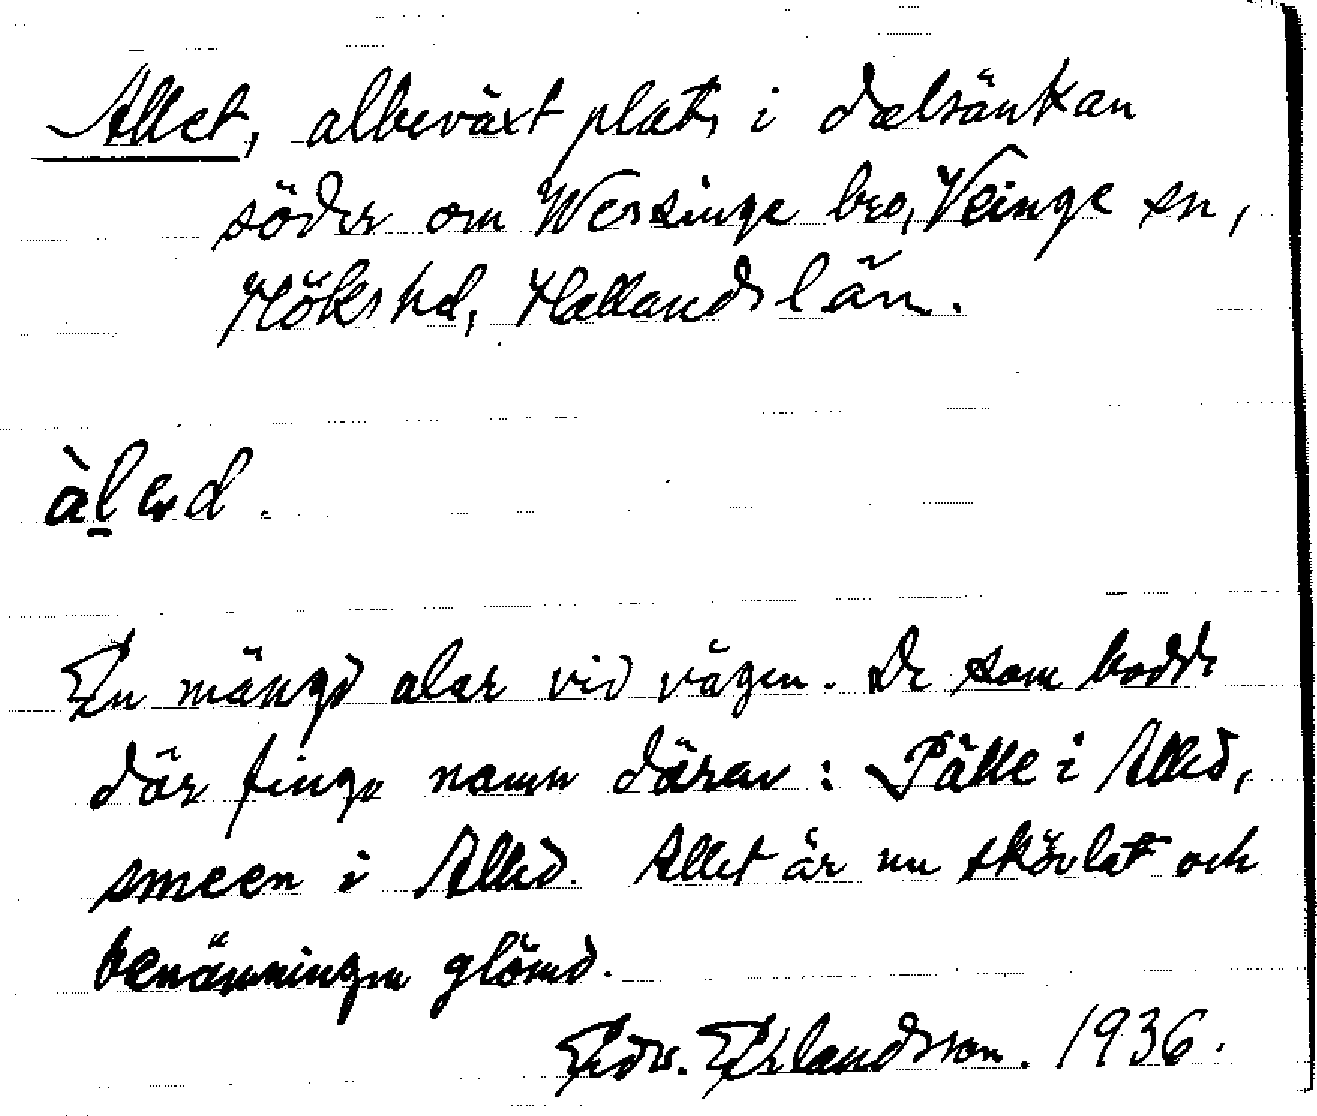 Allet, albeväxt plats i dalsänkan
söder om Wessinge bro, Veinge sn,
Höks hd, Hallands län.
àləd.
En mängd alar vid vägen. De som bodde
där finge namn därav: Pålle i Alled,
smeen i Alled. Allet är nu skövlat och
benämningen glömd.
Edv. Erlandsson. 1936.